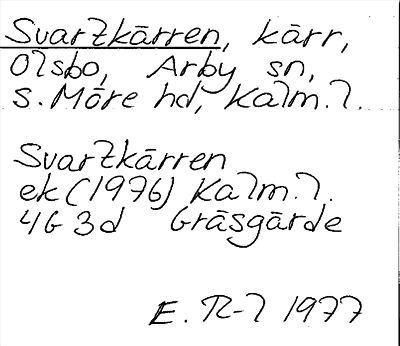 Svartkärren, kärr,
Olsbo, Arby sn,
S. Möre hd, Kalm. l.
Svartkärren
ek (1976) Kalm. l.
4G 3d Gräsgärde
E. R-l 1977